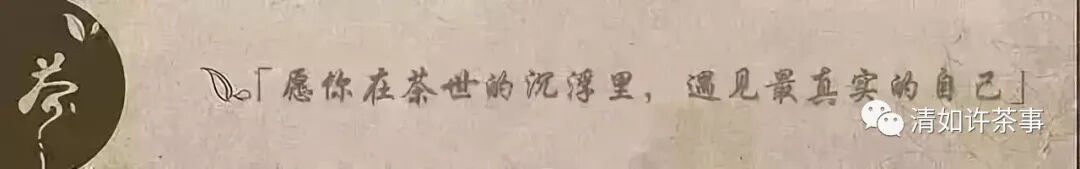 茶
「愿你在茶世的沉浮里，遇见最真实的自己」
清如许茶事